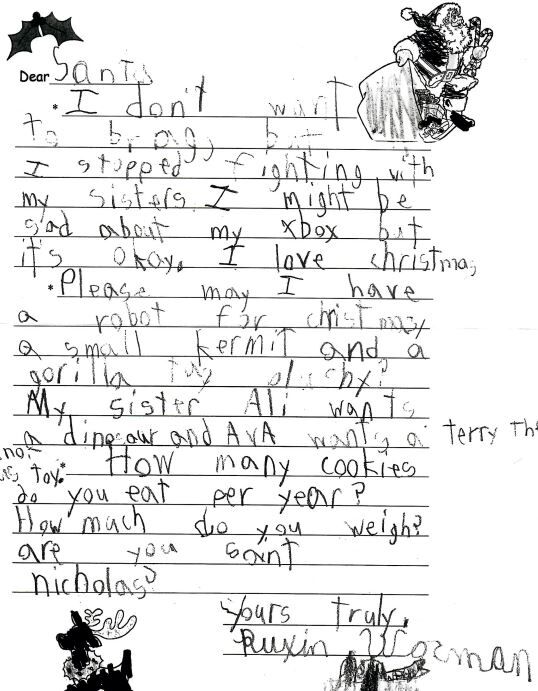 Dear Santa
* I don't want
to brag, but
I stopped fighting with
my sisters. I might be
sad about my xbox but
it's okay. I love christmas
* Please may I have
a robot for christmas,
a small kermit and a
gorilla toy plushy?
My sister Ali wants
a dinosaur and AvA wants a terry the
toy. * How many cookies
do you eat per year?
How much do you weigh?
are you saint
nicholas?
Yours truly,
Wozman